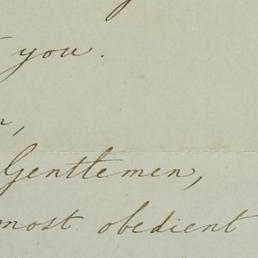 you.
Gentlemen,
most obedient